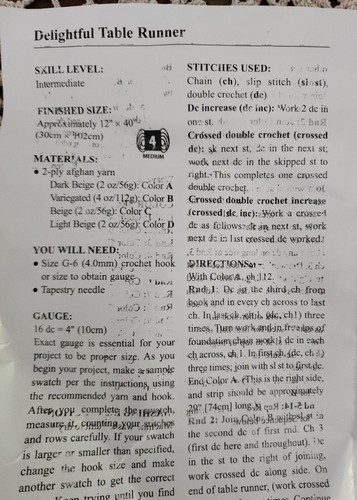 Delightful Table Runner
SKILL LEVEL:
Intermediate
FINISHED SIZE:
Approximately 12" × 40"
(30cm × 102cm)
4
MEDIUM
MATERIALS:
• 2-ply afghan yarn
Dark Beige (2 oz/56g): Color A
Variegated (4 oz/112g): Color B
Beige (2 oz/56g): Color C
Light Beige (2 oz/56g): Color D
YOU WILL NEED:
• Size G-6 (4.0mm) crochet hook
or size to obtain gauge
• Tapestry needle
GAUGE:
16 dc = 4" (10cm)
Exact gauge is essential for your
project to be proper size. As you
begin your project, make a sample
swatch per the instructions using
the recommended yarn and hook.
After you complete the swatch,
measure it, counting your stitches
and rows carefully. If your swatch
is larger or smaller than specified,
change the hook size and make
another swatch to get the correct
Keep trying until you find
STITCHES USED:
Chain (ch), slip stitch (sl st),
double crochet (dc)
Dc increase (dc inc): Work 2 dc in
one st.
Crossed double crochet (crossed
dc): sk next st, dc in the next st;
work next dc in the skipped st to
right. This completes one crossed
double crochet.
Crossed double crochet increase
(crossed dc inc): Work a crossed
dc as follows: dc in next st, work
next dc in last crossed dc worked.
DIRECTIONS:
With Color A, ch 112.
Rnd 1: Dc in the third ch from
hook and in every ch across to last
ch. In last ch (1 dc, ch1) three
times. Turn work and in free lps of
foundation chain work 1 dc in each
ch across, ch 1. In first ch (dc, ch 1)
three times; join with sl st to first dc.
End Color A. (This is the right side,
and strip should be approximately
29" [74cm] long.)
Rnd 2: Join Color B with sl st in
the second dc of first rnd. Ch 3
(first dc here and throughout). Dc
in the st to the right of joining,
work crossed dc along side. On
end of table runner, (work crossed
times. Continue